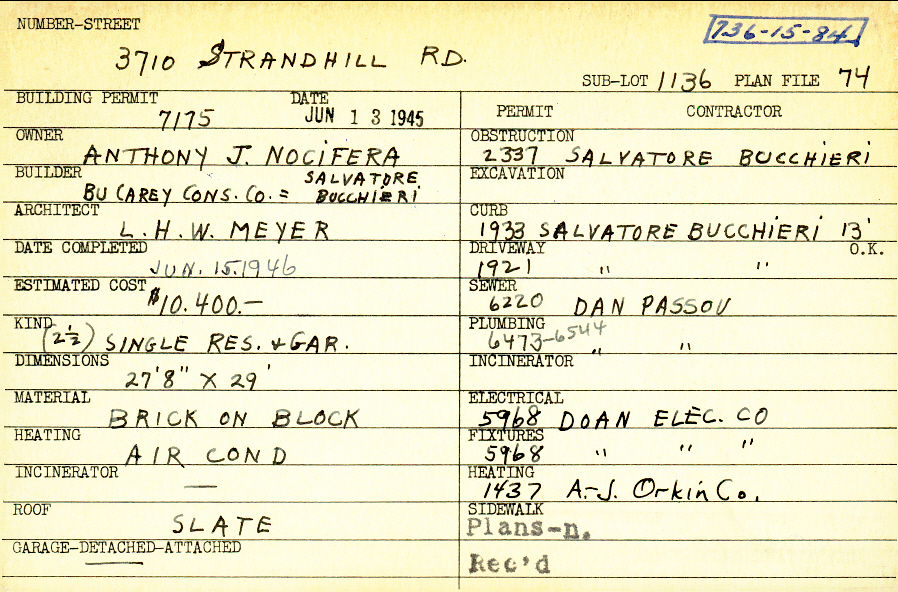 NUMBER-STREET
736-15-84
3710 STRANDHILL RD.
SUB-LOT 1136 PLAN FILE 74
BUILDING PERMIT DATE
7175 JUN 13 1945
OWNER
ANTHONY J. NOCIFERA
BUILDER
BU CAREY CONS. CO. = SALVATORE
BUCCHIERI
ARCHITECT
L. H. W. MEYER
DATE COMPLETED
JUN. 15. 1946
ESTIMATED COST
$10.400.—
KIND
(2½) SINGLE RES. & GAR.
DIMENSIONS
27'8" X 29'
MATERIAL
BRICK ON BLOCK
HEATING
AIR COND
INCINERATOR
—
ROOF
SLATE
GARAGE-DETACHED-ATTACHED
PERMIT CONTRACTOR
OBSTRUCTION
2337 SALVATORE BUCCHIERI
EXCAVATION
CURB
1933 SALVATORE BUCCHIERI 13'
DRIVEWAY O.K.
1921 " "
SEWER
6220 DAN PASSOV
PLUMBING
6473-6544 " "
INCINERATOR
ELECTRICAL
5968 DOAN ELEC. CO
FIXTURES
5968 " " "
HEATING
1437 A.-J. Orkin Co.
SIDEWALK
Plans-n.
Rec'd